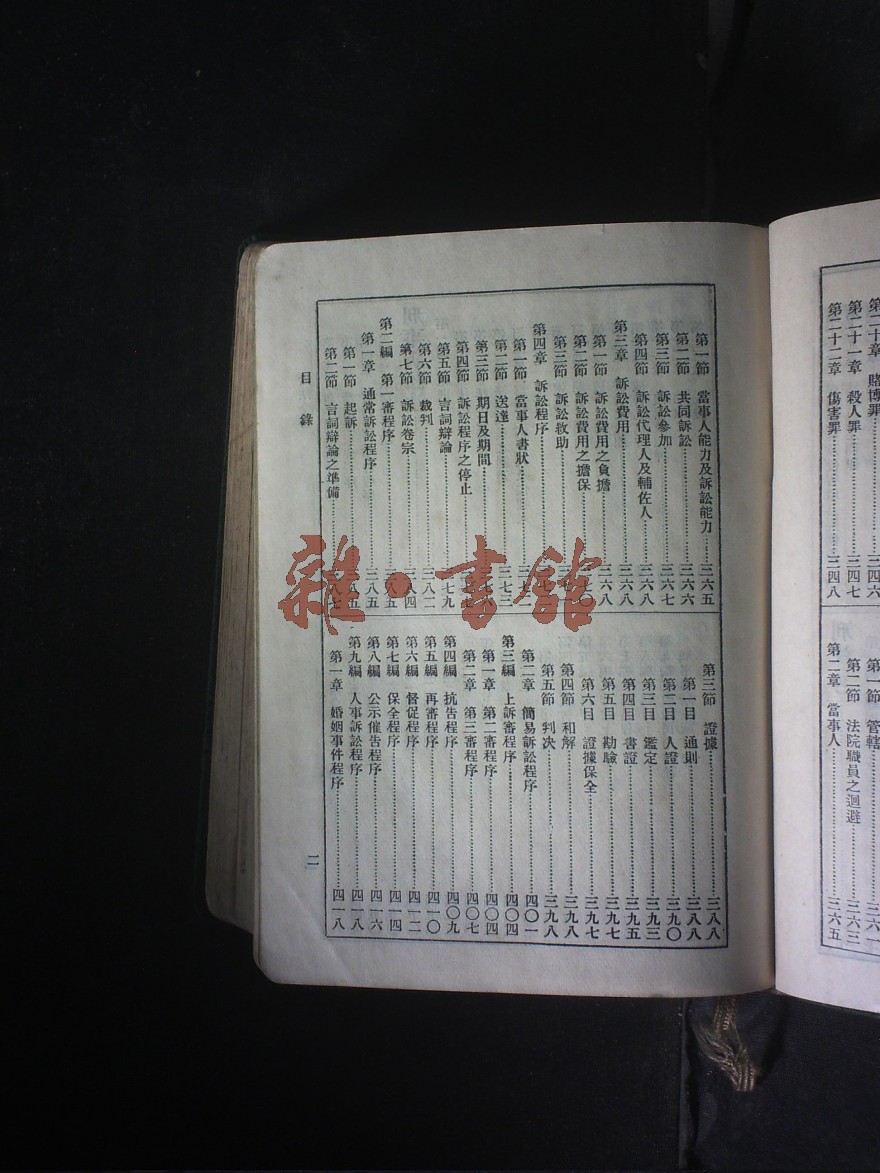 第二十章 賭博罪……三四六
第二十一章 殺人罪……三四七
第二十二章 傷害罪……三四八
第一節 管轄……三六一
第二節 法院職員之迴避……三六三
第二章 當事人……三六五
第一節 當事人能力及訴訟能力……三六五
第二節 共同訴訟……三六六
第三節 訴訟參加……三六七
第四節 訴訟代理人及輔佐人……三六八
第三章 訴訟費用……三六八
第一節 訴訟費用之負擔……三六八
第二節 訴訟費用之擔保……
第三節 訴訟救助……
第四章 訴訟程序……
第一節 當事人書狀……
第二節 送達……三七三
第三節 期日及期間……
第四節 訴訟程序之停止……
第五節 言詞辯論……三七九
第六節 裁判……三八二
第七節 訴訟卷宗……三八四
第二編 第一審程序……三八五
第一章 通常訴訟程序……三八五
第一節 起訴……三八五
第二節 言詞辯論之準備……
第三節 證據……三八八
第一目 通則……三八八
第二目 人證……三九〇
第三目 鑑定……三九三
第四目 書證……三九五
第五目 勘驗……三九七
第六目 證據保全……三九七
第四節 和解……三九八
第五節 判決……三九八
第二章 簡易訴訟程序……四〇一
第三編 上訴審程序……四〇四
第一章 第二審程序……四〇四
第二章 第三審程序……四〇七
第四編 抗告程序……四〇九
第五編 再審程序……四一〇
第六編 督促程序……四一二
第七編 保全程序……四一四
第八編 公示催告程序……四一六
第九編 人事訴訟程序……四一八
第一章 婚姻事件程序……四一八
目錄
二
雜·書館